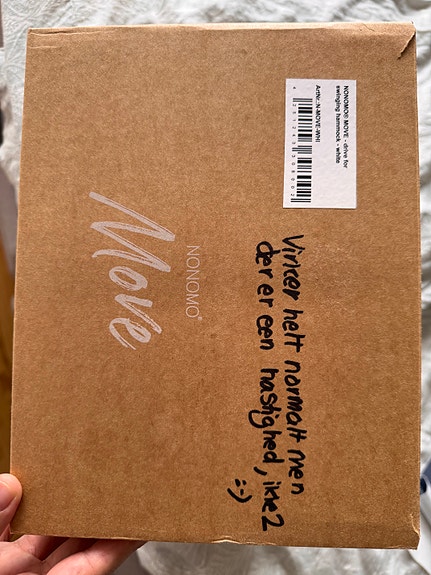 NONOMO® MOVE - drive for
swinging hammock - white
ArtNr.:N-MOVE-WHI
Virker helt normalt men
der er een hastighed, ikke 2
:-)
NONOMO®
Move